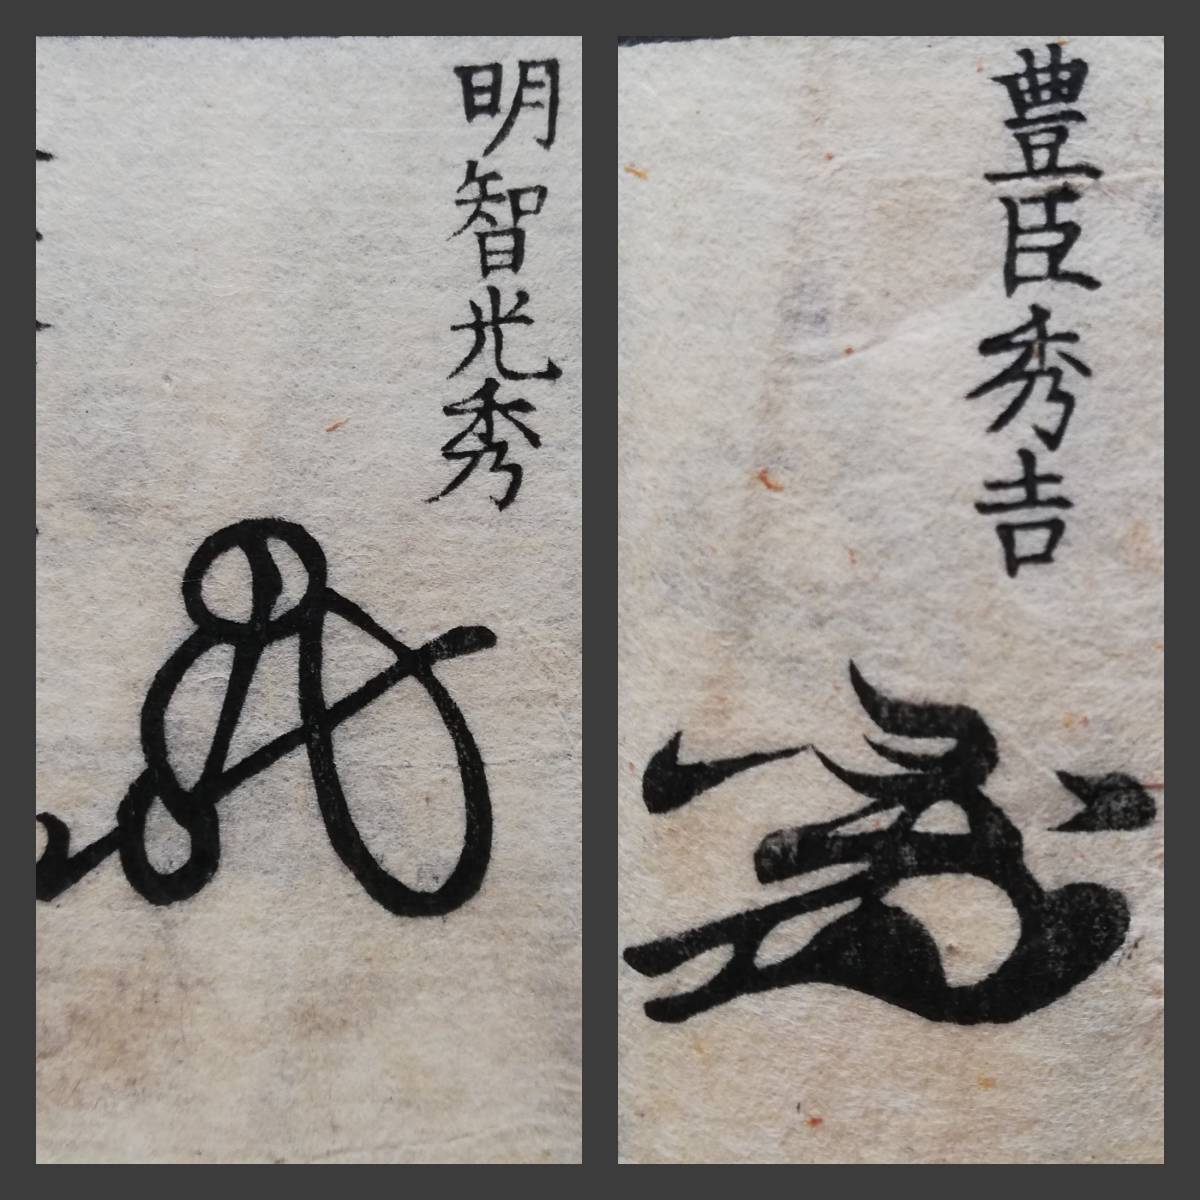 明智光秀
豊臣秀吉